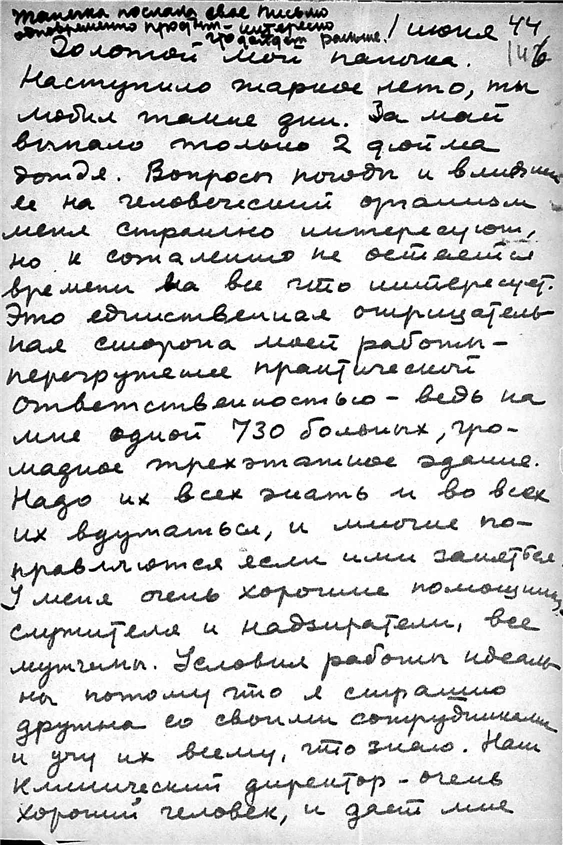 Танечка послала свое письмо
одновременно простым - интересно
что дойдет раньше!
1 июня 44
146
Золотой мой папочка.
Наступило жаркое лето, ты
любил такие дни. За май
выпало только 2 дюйма
дождя. Вопросы погоды и влияния
ее на человеческий организм
меня страшно интересуют,
но к сожалению не остается
времени на все что интересует.
Это единственная отрицатель-
ная сторона моей работы -
перегружение практической
ответственностью - ведь на
мне одной 730 больных, гро-
мадное трехэтажное здание.
Надо их всех знать и во всех
их вдуматься, и многие по-
правляются если ими заняться.
У меня очень хорошие помощники,
служителя и надзиратели, все
мужчины. Условия работы идеаль-
ны потому что я страшно
дружна со своими сотрудниками
и учу их всему, что знаю. Наш
Клинический директор - очень
хороший человек, и дает мне